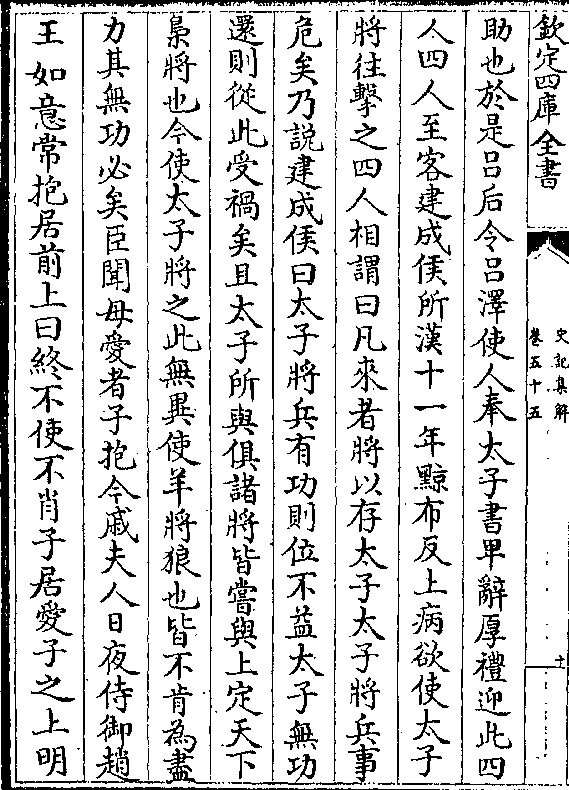 欽定四庫全書
史記集解
卷五十五
十
助也於是呂后令呂澤使人奉太子書卑辭厚禮迎此四
人四人至客建成侯所漢十一年黥布反上病欲使太子
將往擊之四人相謂曰凡來者將以存太子太子將兵事
危矣乃説建成侯曰太子將兵有功則位不益太子無功
還則從此受禍矣且太子所與俱諸將皆嘗與上定天下
梟將也今使太子將之此無異使羊將狼也皆不肯為盡
力其無功必矣臣聞母愛者子抱今戚夫人日夜侍御趙
王如意常抱居前上曰終不使不肖子居愛子之上明